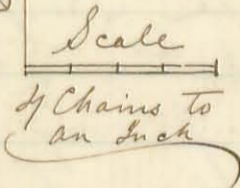 Scale
4 Chains to
an Inch